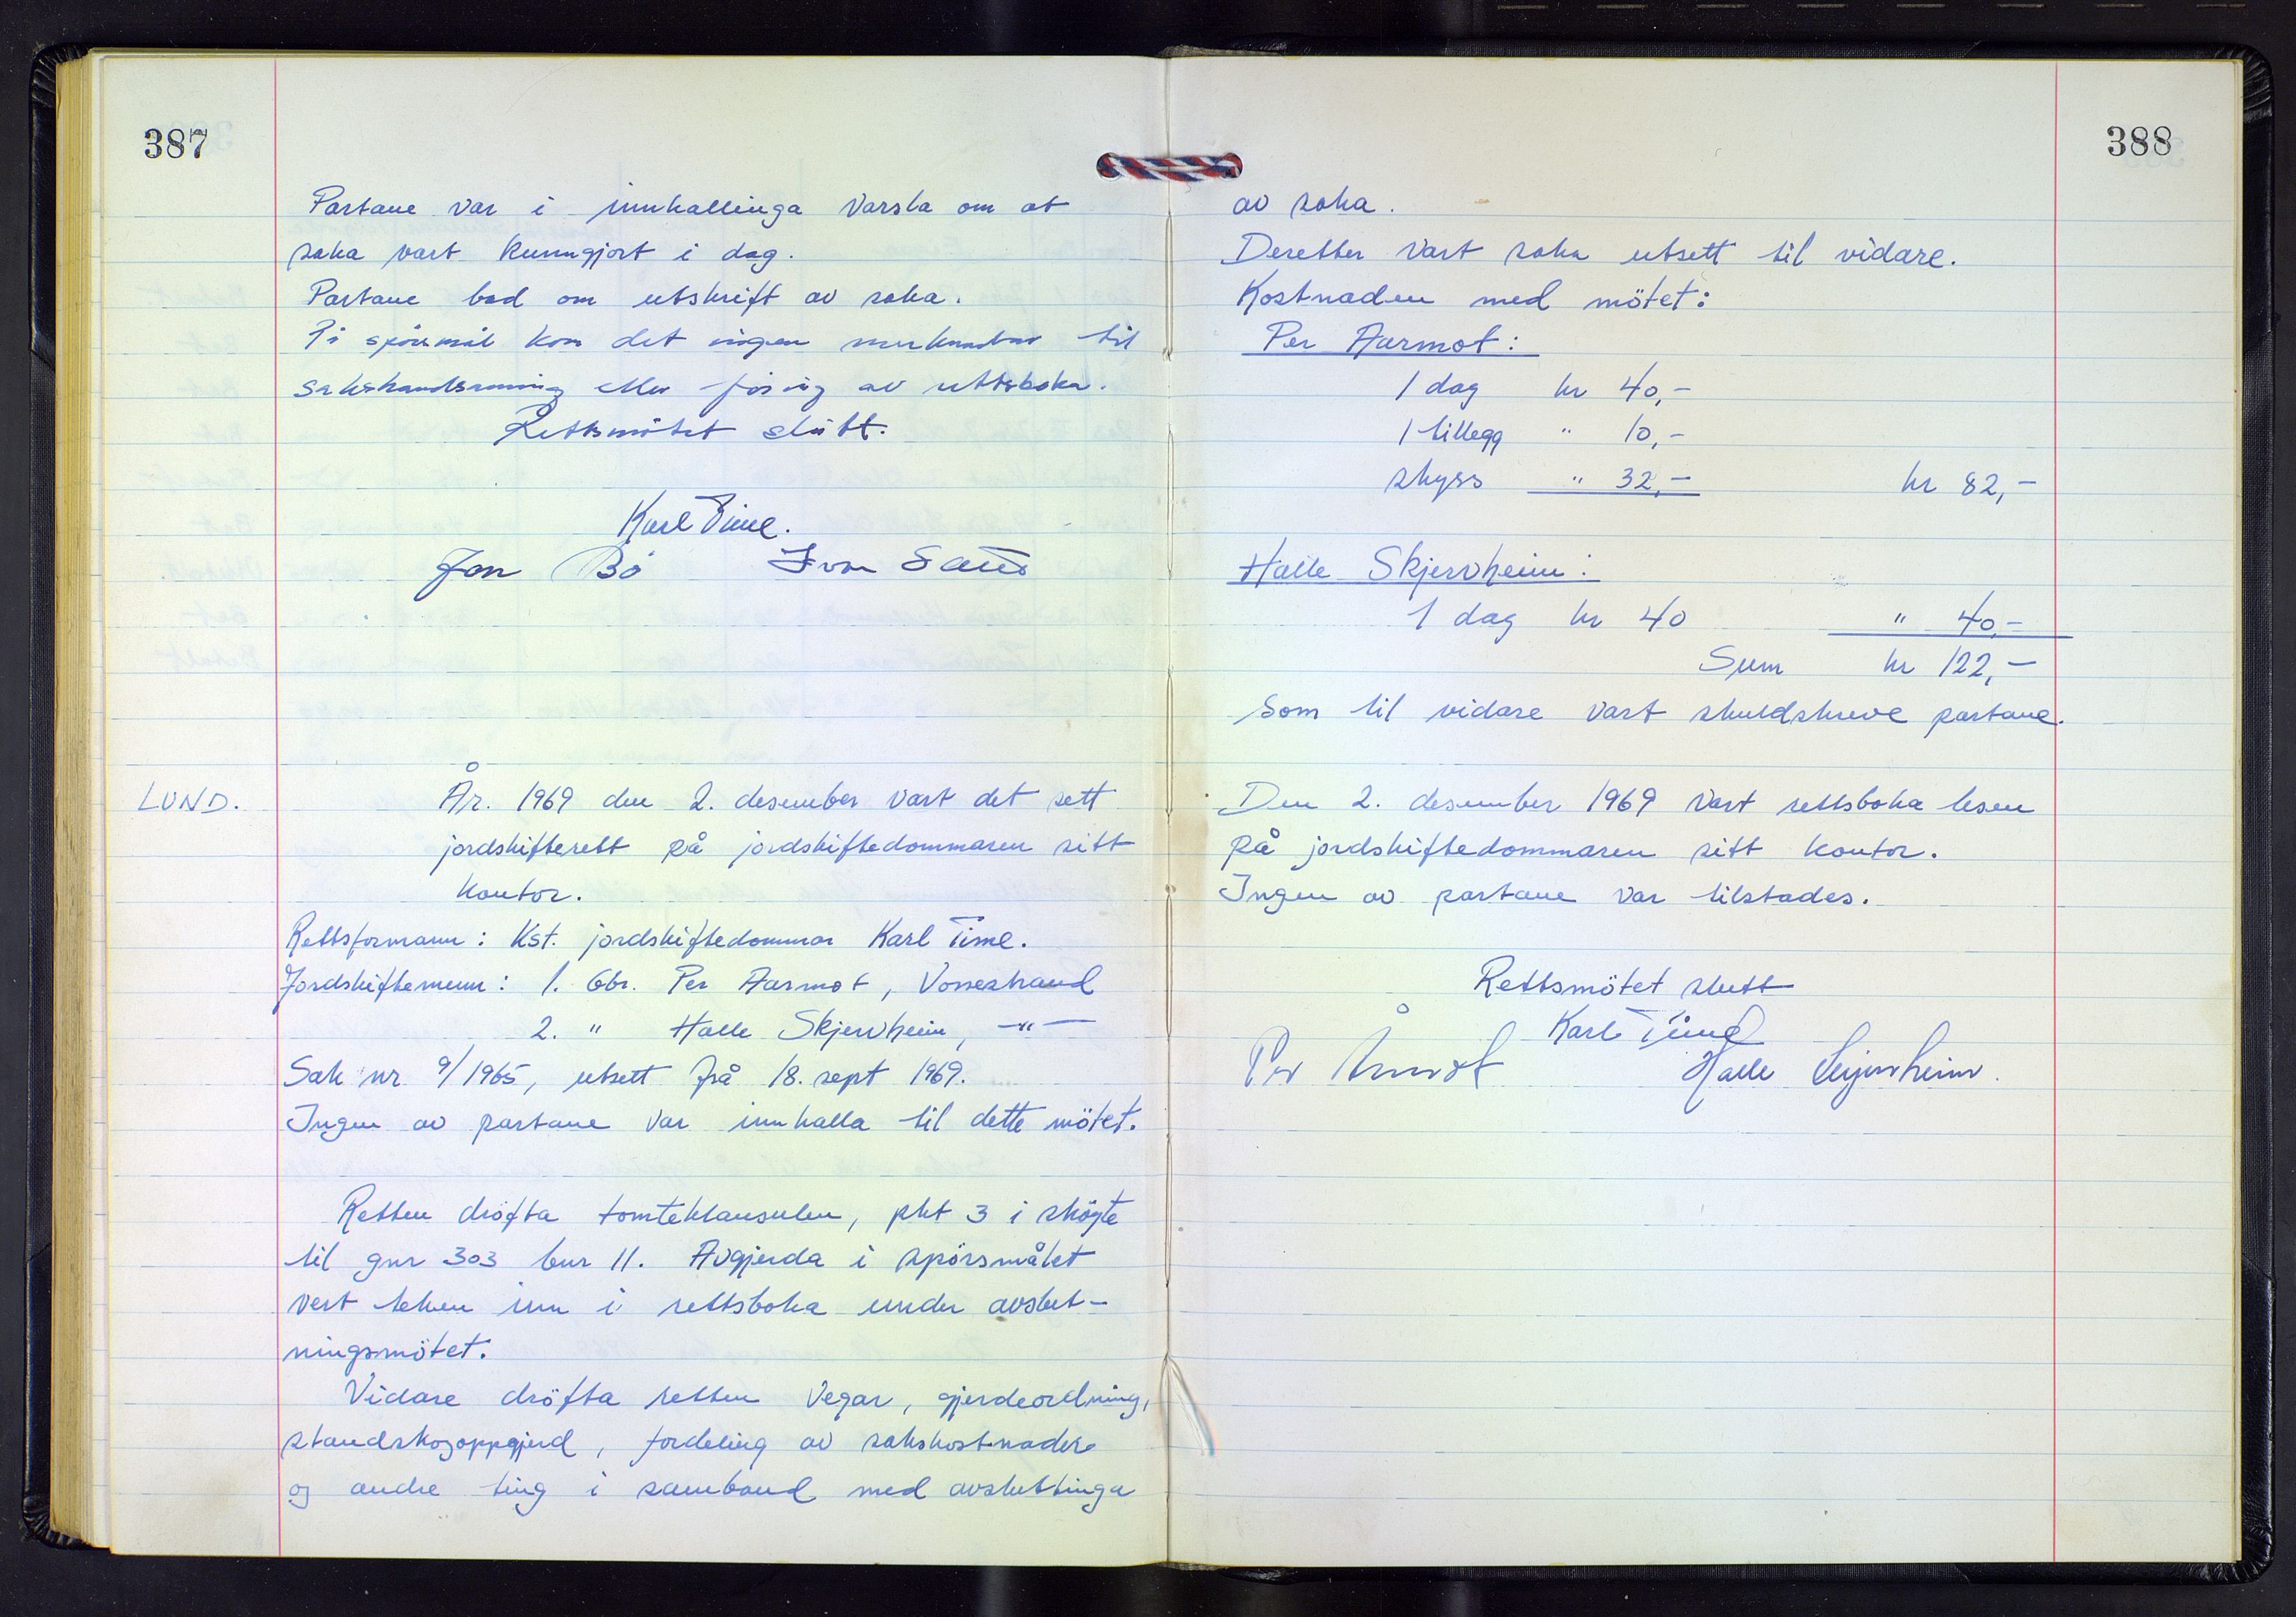 387
Partane var i innkallinga varsla om at
saka vart kunngjort i dag.
Partane bad om utskrift av saka.
På spörsmål kom det ingen merknadar til
sakshandsaming eller föring av rettsboka.
Rettsmötet slutt.
Karl Time.
Jon Bö Ivar
LUND.
År. 1969 den 2. desember vart det sett
jordskifterett på jordskiftedommaren sitt
kontor.
Rettsformann: Kst. jordskiftedommar Karl Time.
Jordskiftemenn: 1. Gbr. Per Aarmot, Vossestrand
2. " Halle Skjervheim, -"-
Sak nr 9/1965, utsett frå 18. sept 1969.
Ingen av partane var innkalla til dette mötet.
Retten dröfta tomteklausulen, pkt 3 i sköyte
til gnr 303 bnr 11. Avgjerda i spörsmålet
vert teken inn i rettsboka under avslut-
ningsmötet.
Vidare dröfta retten vegar, gjerdeordning,
standskogoppgjerd, fordeling av sakskostnader
og andre ting i samband med avsluttinga
388
av saka.
Deretter vart saka utsett til vidare.
Kostnaden med mötet:
Per Aarmot:
1 dag kr 40,-
1 tillegg " 10,-
skyss " 32,- kr 82,-
Halle Skjervheim:
1 dag kr 40 " 40,-
Sum kr 122,-
Som til vidare vart skuldskreve partane.
Den 2. desember 1969 vart rettsboka lesen
på jordskiftedommaren sitt kontor.
Ingen av partane var tilstades.
Rettsmötet slutt
Karl Time
Per Årmot Halle Skjervheim.